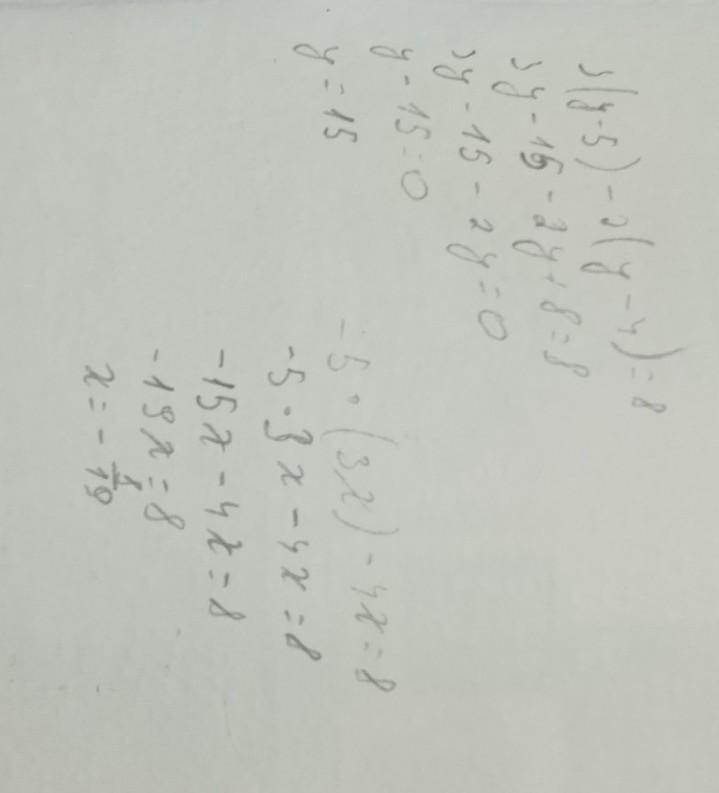 3(y-5)-2(y-4)=8
3y-15-2y+8=8
3y-15-2y=0
y-15=0
y=15
-5·(3x)-4x=8
-5·3x-4x=8
-15x-4x=8
-19x=8
x=-8/19